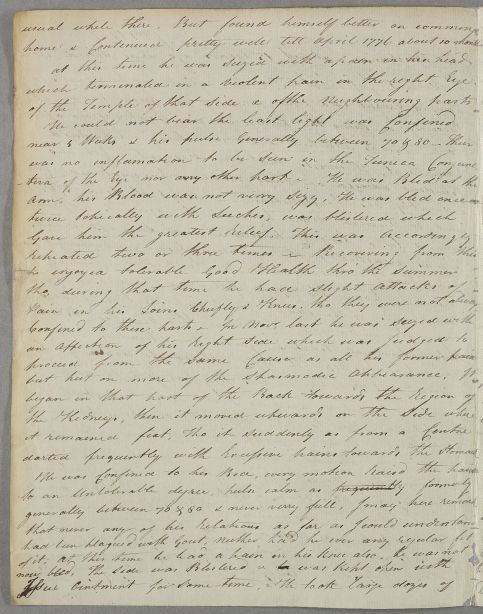 usual while there. But found himself better on coming
home & Continued pretty well till April 1776 about 10 months
at this time he was Seized with a pain in his head
which terminated in a violent pain in the right Eye
of the Temple of that Side & of the Neighbouring parts
He could not bear the least light was Confined
near 5 Weeks & his pulse Generally between 70 & 80 – There
was no inflamation to be Seen in the Tunica Conjunc
tiva of the Eye nor any other part – He was Bled at the
Arm, his Blood was not very Sizy, He was bled once or
twice topically with Leeches, was blistered which
Gave him the greatest relief. This was accordingly
repeated two or three times – Recovering from this
he enjoyed tolerable Good Health thro the Summer
tho, during that time he had Slight Attacks of
Pain in his Loins Chiefly & Knees. tho they were not always
Confined to these parts – In Novr. last he was Seized with
an affection of his Right Side which was judged to
proceed from the Same Cause as all his former pain
but put on more of the Spasmodic Appearance. It
began in that part of the Back towards the Region of
the Kidneys, then it moved upwards on the Side where
it remained fixt, Tho it Suddenly as from a Centre
darted frequently with Excessive pains towards the Stomach
He was Confined to his Bed, every motion Raised the pain
to an Untolerable degree, pulse calm as formerly
generally between 70 & 80 & never very full, I may here remark
that never any of his Relations as far as I could understand
had been plagued with Gout, neither had he ever any regular fit
of it, at this time he had a pain in his Knee also. He was not
now bled, the Side was Blistered & was kept open with
Issue Ointment for Some time. He took large doses of